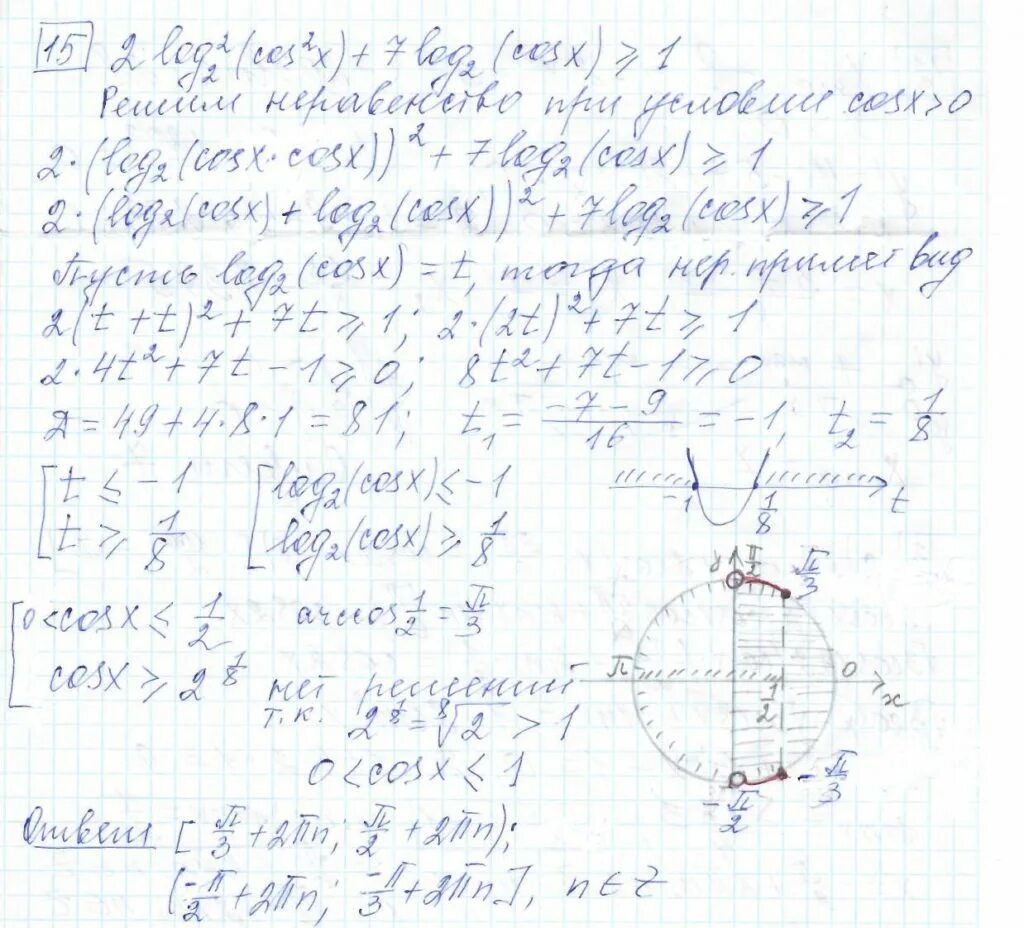 15 2 log₂²(cos²x) + 7 log₂(cosx) ⩾ 1
Решим неравенство при условии cosx>0
2·(log₂(cosx·cosx))² + 7log₂(cosx) ⩾ 1
2·(log₂(cosx) + log₂(cosx))² + 7log₂(cosx) ⩾ 1
Пусть log₂(cosx) = t, тогда нер. примет вид
2(t + t)² + 7t ⩾ 1; 2·(2t)² + 7t ⩾ 1
2·4t² + 7t - 1 ⩾ 0; 8t² + 7t - 1 ⩾ 0
Д = 49 + 4·8·1 = 81; t₁ = (-7 - 9)/16 = -1; t₂ = 1/8
[ t ⩽ -1 [ log₂(cosx) ⩽ -1
t ⩾ 1/8 log₂(cosx) ⩾ 1/8
-1 1/8 t
[ 0 < cosx ⩽ 1/2 arccos 1/2 = π/3
cosx ⩾ 2^(1/8) нет решений
т.к. 2^(1/8) = ⁸√2 > 1
0 < cosx ⩽ 1
y π/2 π/3
π 0
1/2 x
-π/3
-π/2
Ответ [π/3 + 2πn; π/2 + 2πn);
(-π/2 + 2πn; -π/3 + 2πn], n ∈ Z